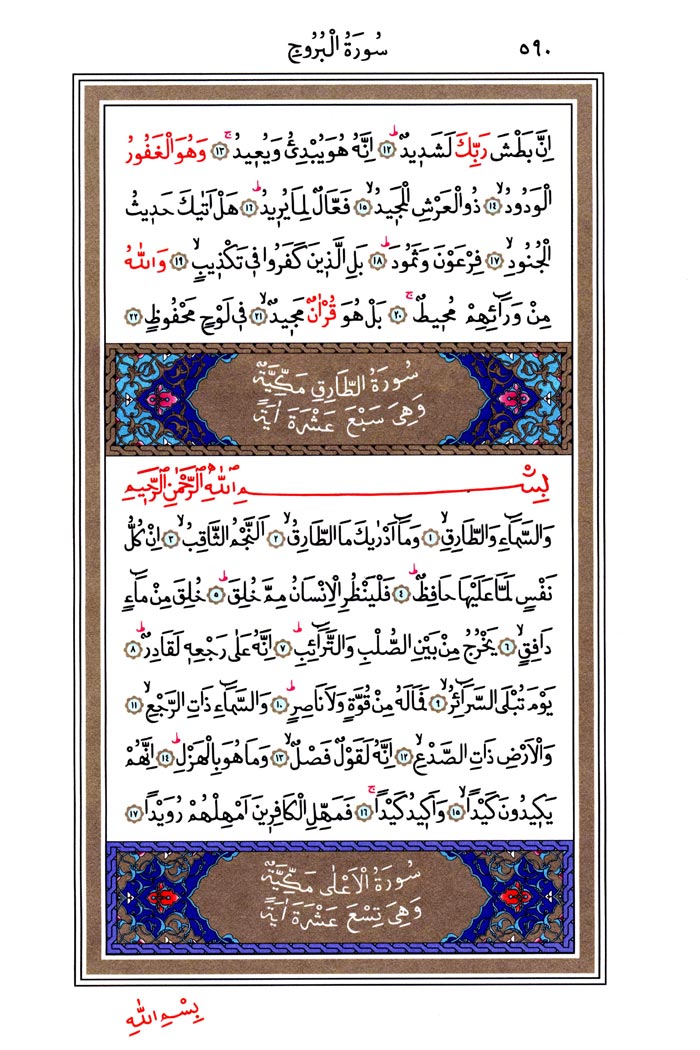 ٥٩٠ سُورَةُ الْبُرُوجِ
اِنَّ بَطْشَ رَبِّكَ لَشَدٖيدٌؕ ﴿١٢﴾ اِنَّهُ هُوَ يُبْدِئُ وَيُعٖيدُۚ ﴿١٣﴾ وَهُوَ الْغَفُورُ
الْوَدُودُۙ ﴿١٤﴾ ذُو الْعَرْشِ الْمَجٖيدُۙ ﴿١٥﴾ فَعَّالٌ لِمَا يُرٖيدُؕ ﴿١٦﴾ هَلْ اَتٰيكَ حَدٖيثُ
الْجُنُودِۙ ﴿١٧﴾ فِرْعَوْنَ وَثَمُودَؕ ﴿١٨﴾ بَلِ الَّذٖينَ كَفَرُوا فٖي تَكْذٖيبٍۙ ﴿١٩﴾ وَاللّٰهُ
مِنْ وَرَٓائِهِمْ مُحٖيطٌۚ ﴿٢٠﴾ بَلْ هُوَ قُرْاٰنٌ مَجٖيدٌۙ ﴿٢١﴾ فٖي لَوْحٍ مَحْفُوظٍ ﴿٢٢﴾
سُورَةُ الطَّارِقِ مَكِّيَّةٌ
وَهِيَ سَبْعَ عَشْرَةَ اٰيَةً
بِسْمِ اللّٰهِ الرَّحْمٰنِ الرَّحٖيمِ
وَالسَّمَٓاءِ وَالطَّارِقِۙ ﴿١﴾ وَمَٓا اَدْرٰيكَ مَا الطَّارِقُۙ ﴿٢﴾ اَلنَّجْمُ الثَّاقِبُۙ ﴿٣﴾ اِنْ كُلُّ
نَفْسٍ لَمَّا عَلَيْهَا حَافِظٌؕ ﴿٤﴾ فَلْيَنْظُرِ الْاِنْسَانُ مِمَّ خُلِقَؕ ﴿٥﴾ خُلِقَ مِنْ مَٓاءٍ
دَافِقٍۙ ﴿٦﴾ يَخْرُجُ مِنْ بَيْنِ الصُّلْبِ وَالتَّرَٓائِبِؕ ﴿٧﴾ اِنَّهُ عَلٰى رَجْعِهٖ لَقَادِرٌؕ ﴿٨﴾
يَوْمَ تُبْلَى السَّرَٓائِرُۙ ﴿٩﴾ فَمَا لَهُ مِنْ قُوَّةٍ وَلَا نَاصِرٍؕ ﴿١٠﴾ وَالسَّمَٓاءِ ذَاتِ الرَّجْعِۙ ﴿١١﴾
وَالْاَرْضِ ذَاتِ الصَّدْعِۙ ﴿١٢﴾ اِنَّهُ لَقَوْلٌ فَصْلٌۙ ﴿١٣﴾ وَمَا هُوَ بِالْهَزْلِؕ ﴿١٤﴾ اِنَّهُمْ
يَكٖيدُونَ كَيْدًاۙ ﴿١٥﴾ وَاَكٖيدُ كَيْدًاۚ ﴿١٦﴾ فَمَهِّلِ الْكَافِرٖينَ اَمْهِلْهُمْ رُوَيْدًا ﴿١٧﴾
سُورَةُ الْاَعْلٰى مَكِّيَّةٌ
وَهِيَ تِسْعَ عَشْرَةَ اٰيَةً
بِسْمِ اللّٰهِ